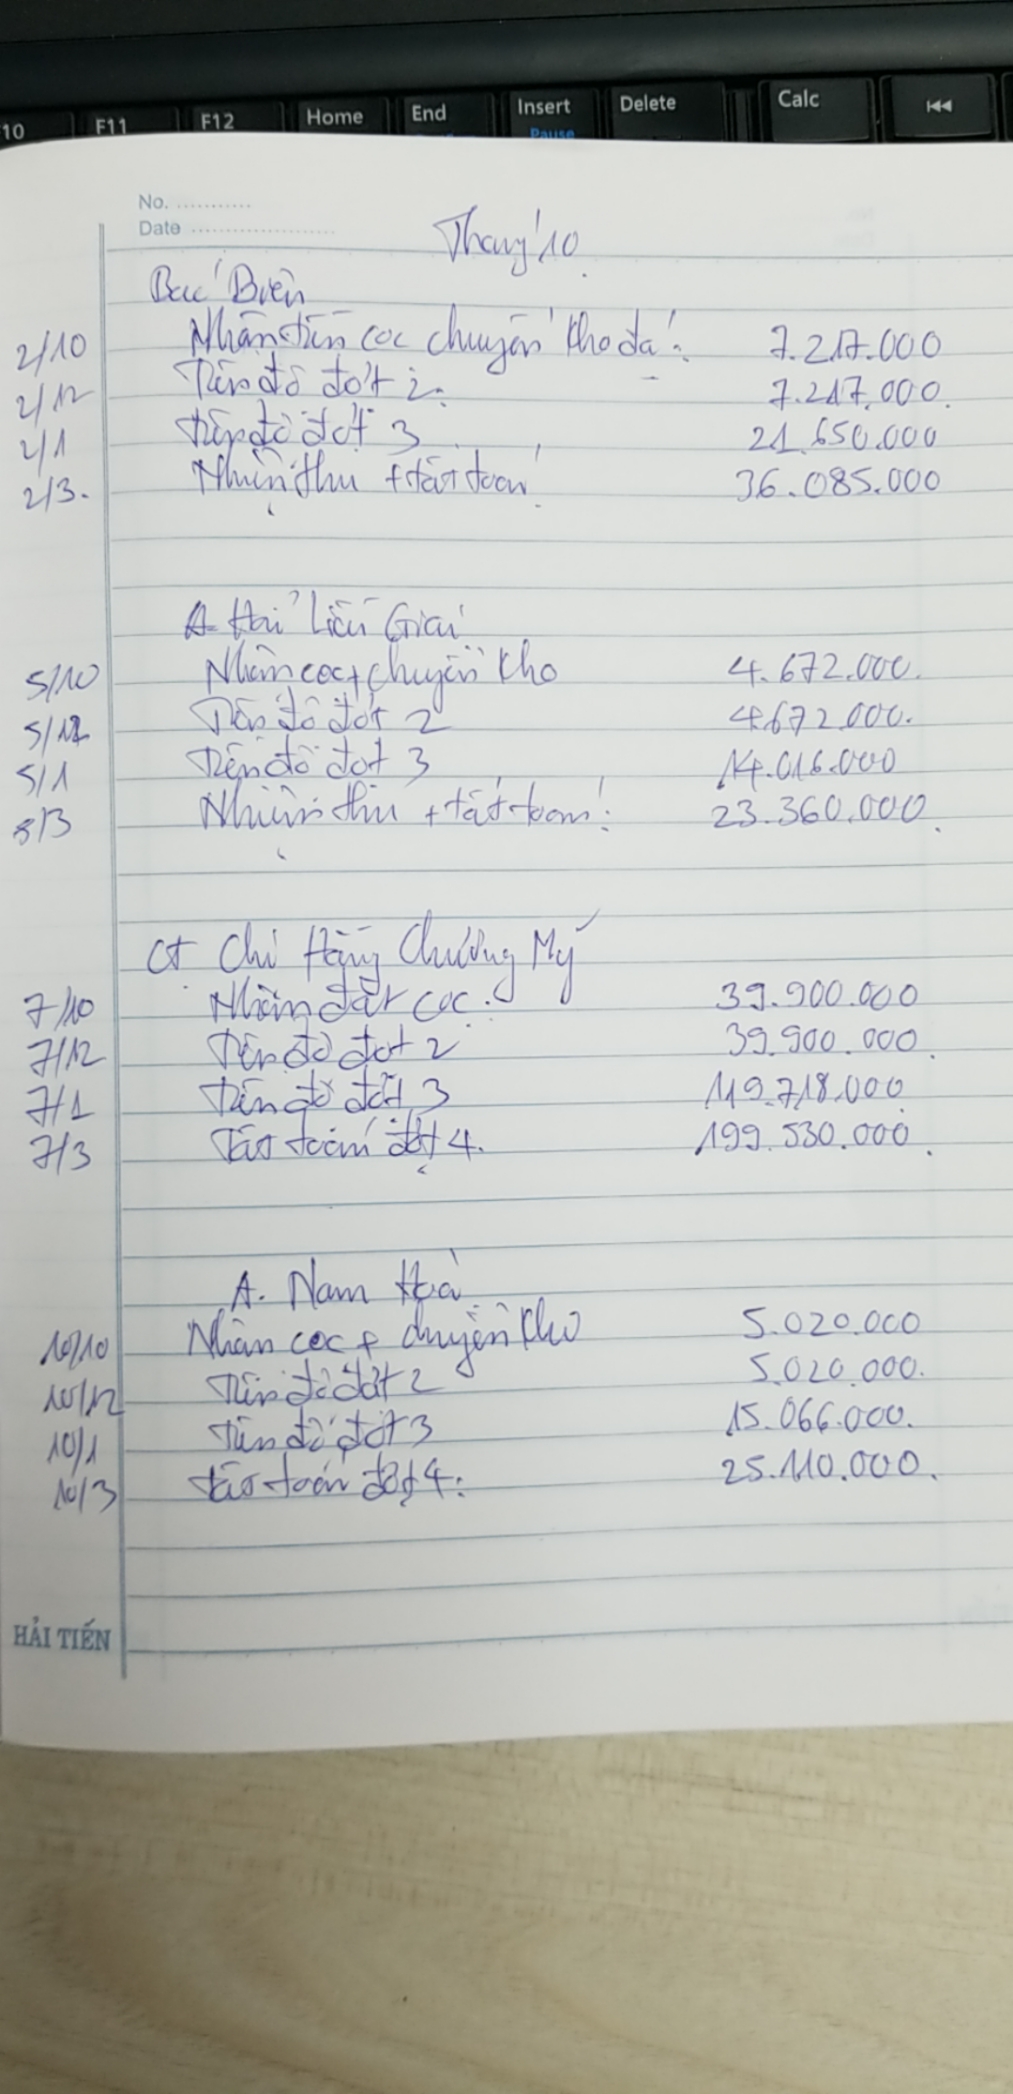 F10 F11 F12 Home End Insert Delete Calc
Pause
No.
Date
Tháng 10
Bác Biên
2/10 Nhận tiền cọc chuyển kho đá: 7.217.000
2/12 Tiến độ đợt 2: 7.217.000.
2/1 Tiến độ đợt 3 21.650.000
2/3. Nghiệm thu + tất toán 36.085.000
A. Hải Liễu Giai
5/10 Nhận cọc + chuyển kho 4.672.000.
5/12 Tiến độ đợt 2 4.672.000.
5/1 Tiến độ đợt 3 14.016.000
5/3 Nghiệm thu + tất toán: 23.360.000.
CT Chị Hằng Chương Mỹ
7/10 Nhận đặt cọc. 39.900.000
7/12 Tiến độ đợt 2 39.900.000.
7/1 Tiến độ đợt 3 119.718.000
7/3 Tất toán đợt 4. 199.530.000.
A. Nam Hoà
10/10 Nhận cọc + chuyển kho 5.020.000
10/12 Tiến độ đợt 2 5.020.000.
10/1 Tiến độ đợt 3 15.066.000.
10/3 Tất toán đợt 4. 25.110.000.
HẢI TIẾN